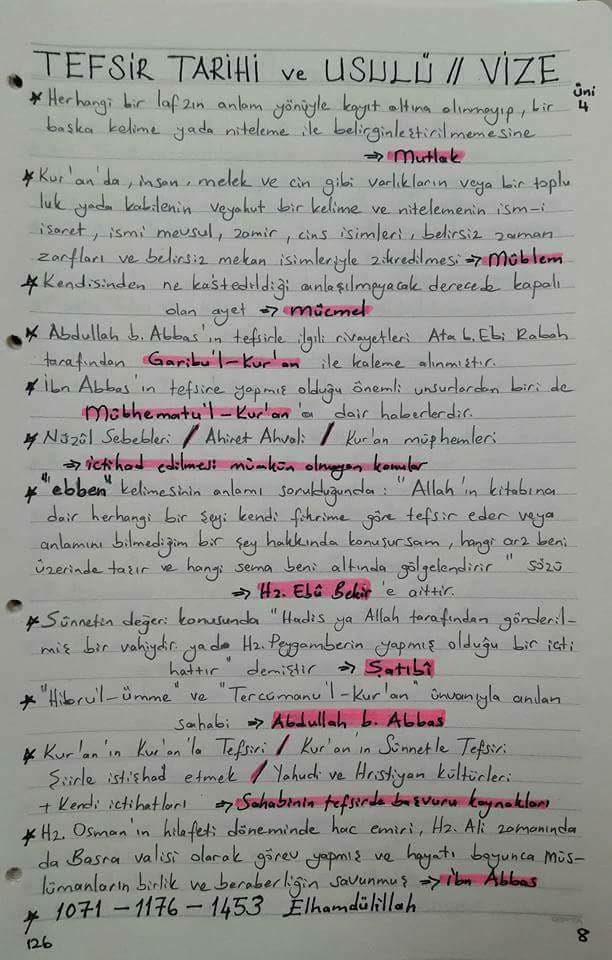 TEFSİR TARİHİ ve USULÜ // VİZE
Üni 4
* Herhangi bir lafzın anlam yönüyle kayıt altına alınmayıp, bir
başka kelime yada niteleme ile belirginleştirilmemesine
⇒ Mutlak
* Kur'an'da, insan, melek ve cin gibi varlıkların veya bir toplu
luk yada kabilenin veyahut bir kelime ve nitelemenin ism-i
işaret, ismi mevsul, zamir, cins isimleri, belirsiz zaman
zarfları ve belirsiz mekan isimleriyle zikredilmesi ⇒ Müblem
* Kendisinden ne kastedildiği anlaşılmayacak derecede kapalı
olan ayet ⇒ Mücmel
* Abdullah b. Abbas'ın tefsirle ilgili rivayetleri Ata b. Ebi Rabah
tarafından Garibu'l-Kur'an ile kaleme alınmıştır.
* İbn Abbas'ın tefsire yapmış olduğu önemli unsurlardan biri de
Mübhematu'l-Kur'an'a dair haberlerdir.
* Nüzûl Sebebleri / Ahiret Ahvali / Kur'an müphemleri
⇒ ictihad edilmesi mümkün olmayan konular
* "ebben" kelimesinin anlamı sorulduğunda: "Allah'ın kitabına
dair herhangi bir şeyi kendi fikrime göre tefsir eder veya
anlamını bilmediğim bir şey hakkında konuşursam, hangi arz beni
üzerinde taşır ve hangi sema beni altında gölgelendirir" sözü
⇒ Hz. Ebû Bekir'e aittir.
* Sünnetin değeri konusunda "Hadis ya Allah tarafından gönderil-
miş bir vahiydir yada Hz. Peygamberin yapmış olduğu bir icti
hattır" demiştir ⇒ Şatıbî
* "Hibru'l-ümme" ve "Tercümanu'l-Kur'an" ünvanıyla anılan
sahabi ⇒ Abdullah b. Abbas
* Kur'an'ın Kur'an'la Tefsiri / Kur'an'ın Sünnetle Tefsiri
Şiirle istişhad etmek / Yahudi ve Hristiyan kültürleri
+ Kendi ictihatları ⇒ Sahabinin tefsirde başvuru kaynakları
* Hz. Osman'ın hilafeti döneminde hac emiri, Hz. Ali zamanında
da Basra valisi olarak görev yapmış ve hayatı boyunca Müs-
lümanların birlik ve beraberliğin savunmuş ⇒ İbn Abbas
* 1071 - 1176 - 1453 Elhamdülillah
126
8